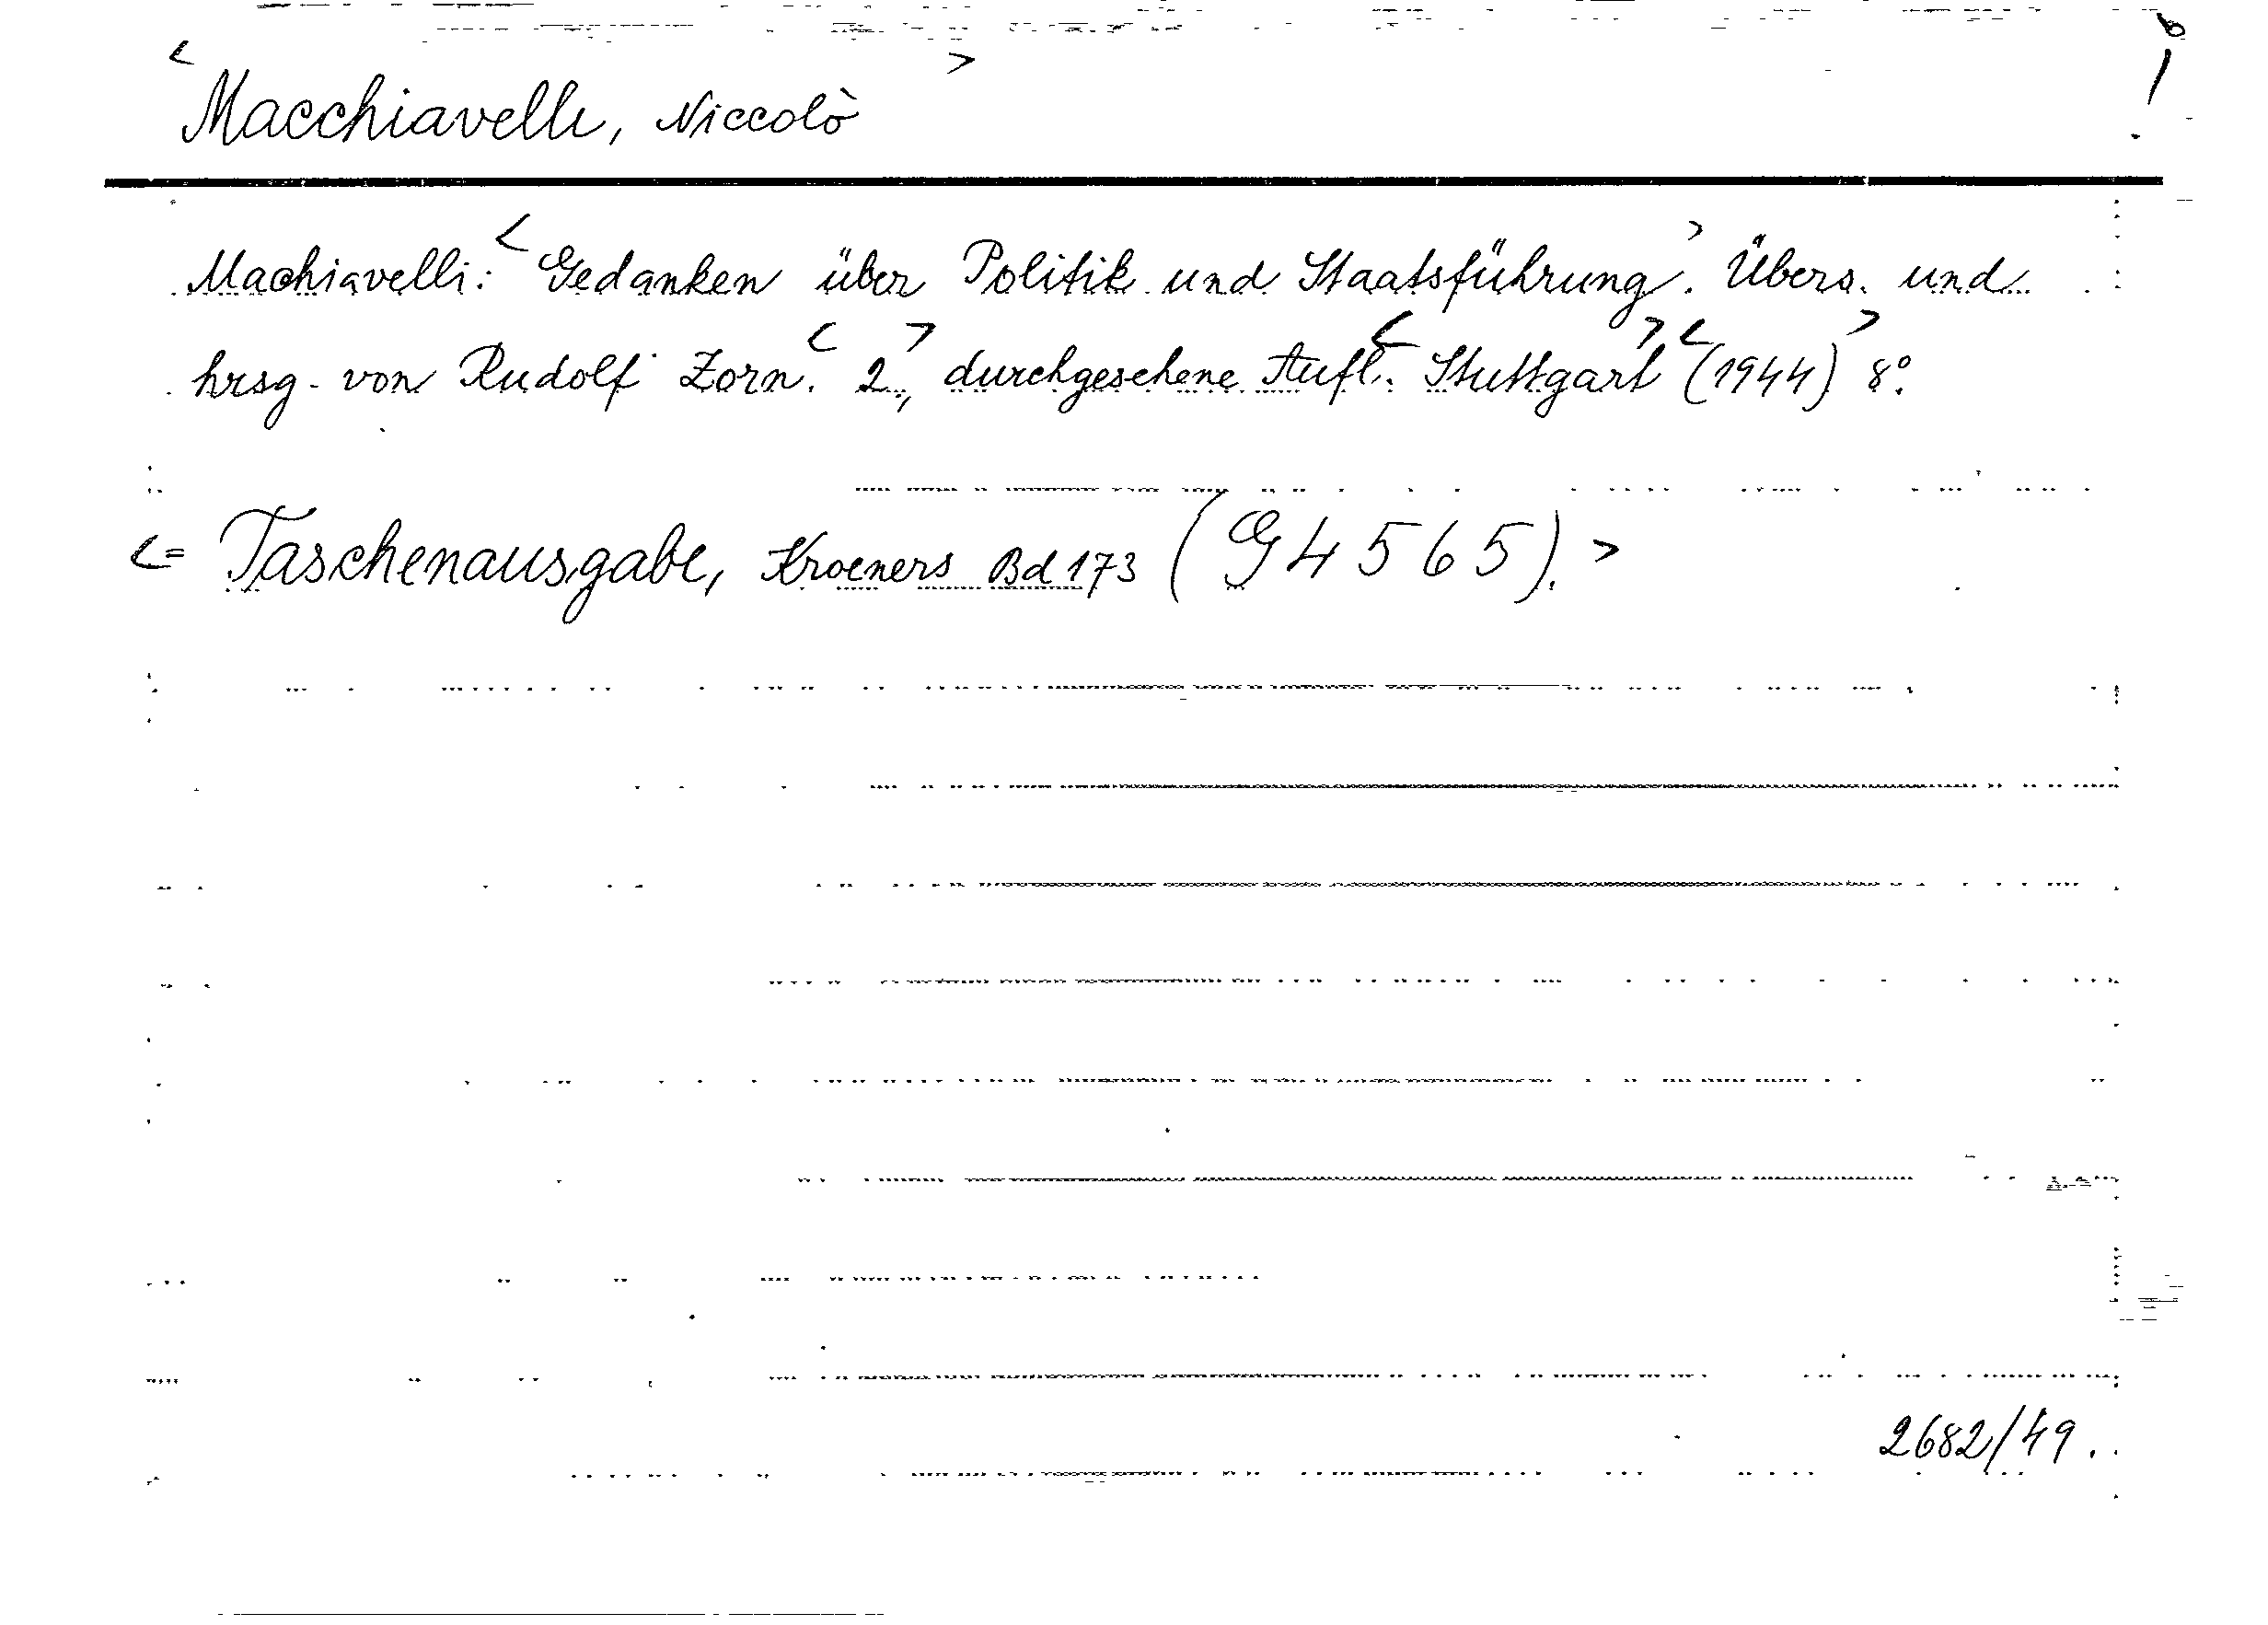 < Macchiavelli, Niccolò >
Machiavelli: < Gedanken über Politik und Staatsführung >. Übers. und
hrsg. von Rudolf Zorn. < 2., > durchgesehene Aufl. < Stuttgart > < (1944) > 8°.
<= Taschenausgabe, Kroeners Bd 173 (G 4565). >
2682/49.